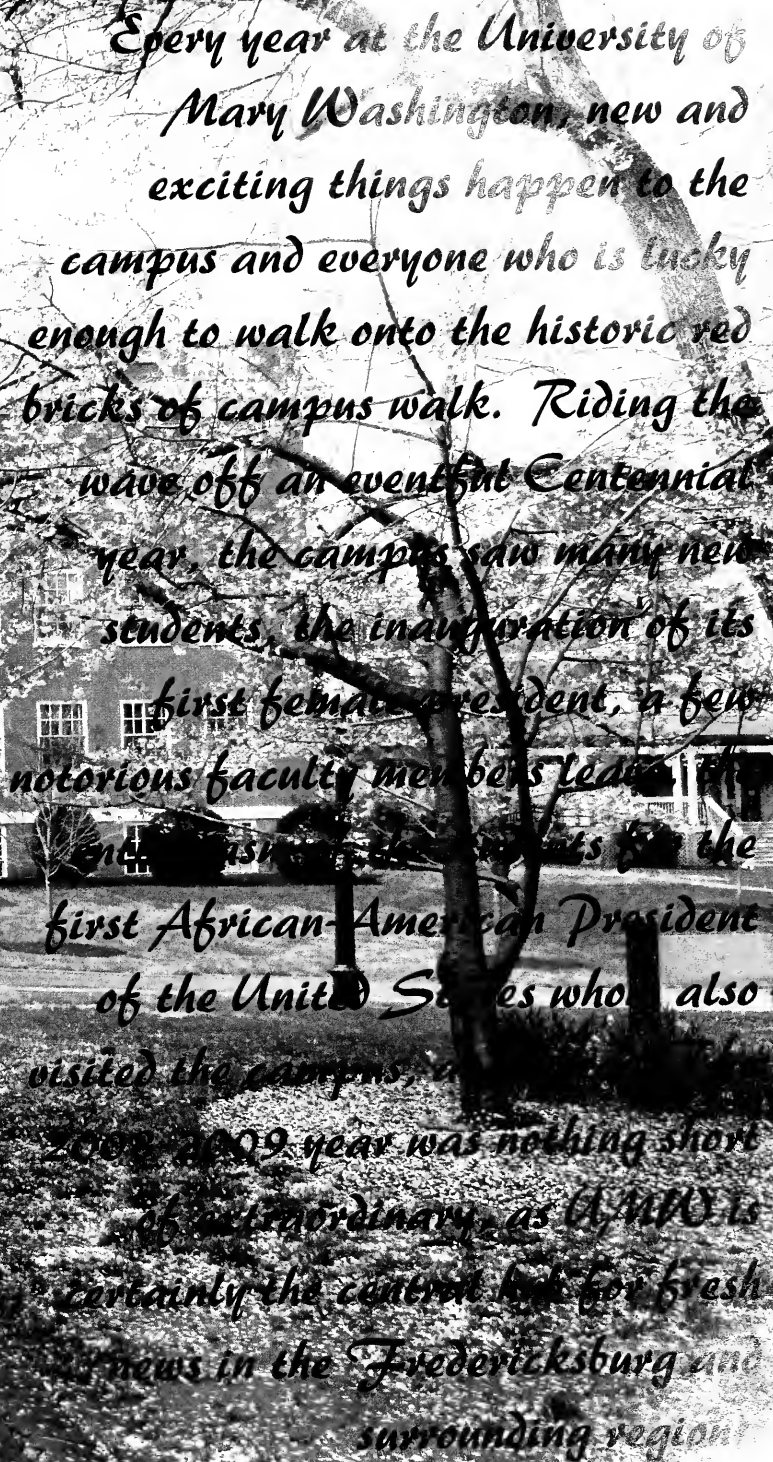 Every year at the University of
Mary Washington, new and
exciting things happen to the
campus and everyone who is lucky
enough to walk onto the historic red
bricks of campus walk. Riding the
wave off an eventful Centennial
year, the campus saw many new
students, the inauguration of its
first female president, a few
notorious faculty members leave, the
enthusiasm of the students for the
first African-American President
of the United States who also
visited the campus, The
2008-2009 year was nothing short
of extraordinary, as UMW is
certainly the central hub for fresh
news in the Fredericksburg and
surrounding region